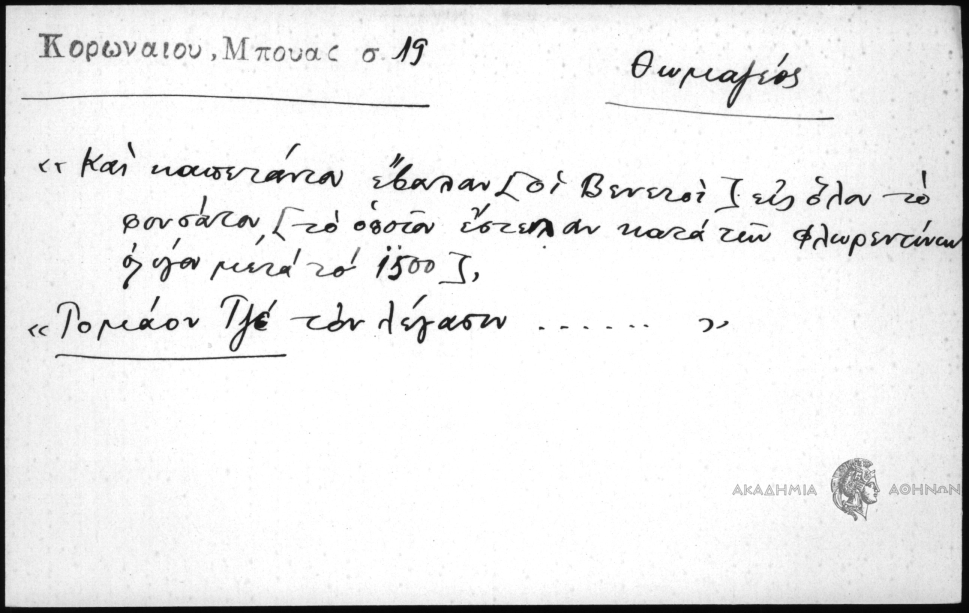 Κορωναιου, Μπουας σ. 19
Θωμαζεός
«Καὶ καπετάνιον ἔβαλαν [οἱ Βενετοὶ] εἰς ὅλον τὸ
φουσάτον, [τὸ ὁποῖον ἔστειλαν κατὰ τῶν Φλωρεντίνων
ὀλίγον μετὰ τὸ 1500],
« τὸν λέγασιν ...... »
ΑΚΑΔΗΜΙΑ ΑΘΗΝΩΝ